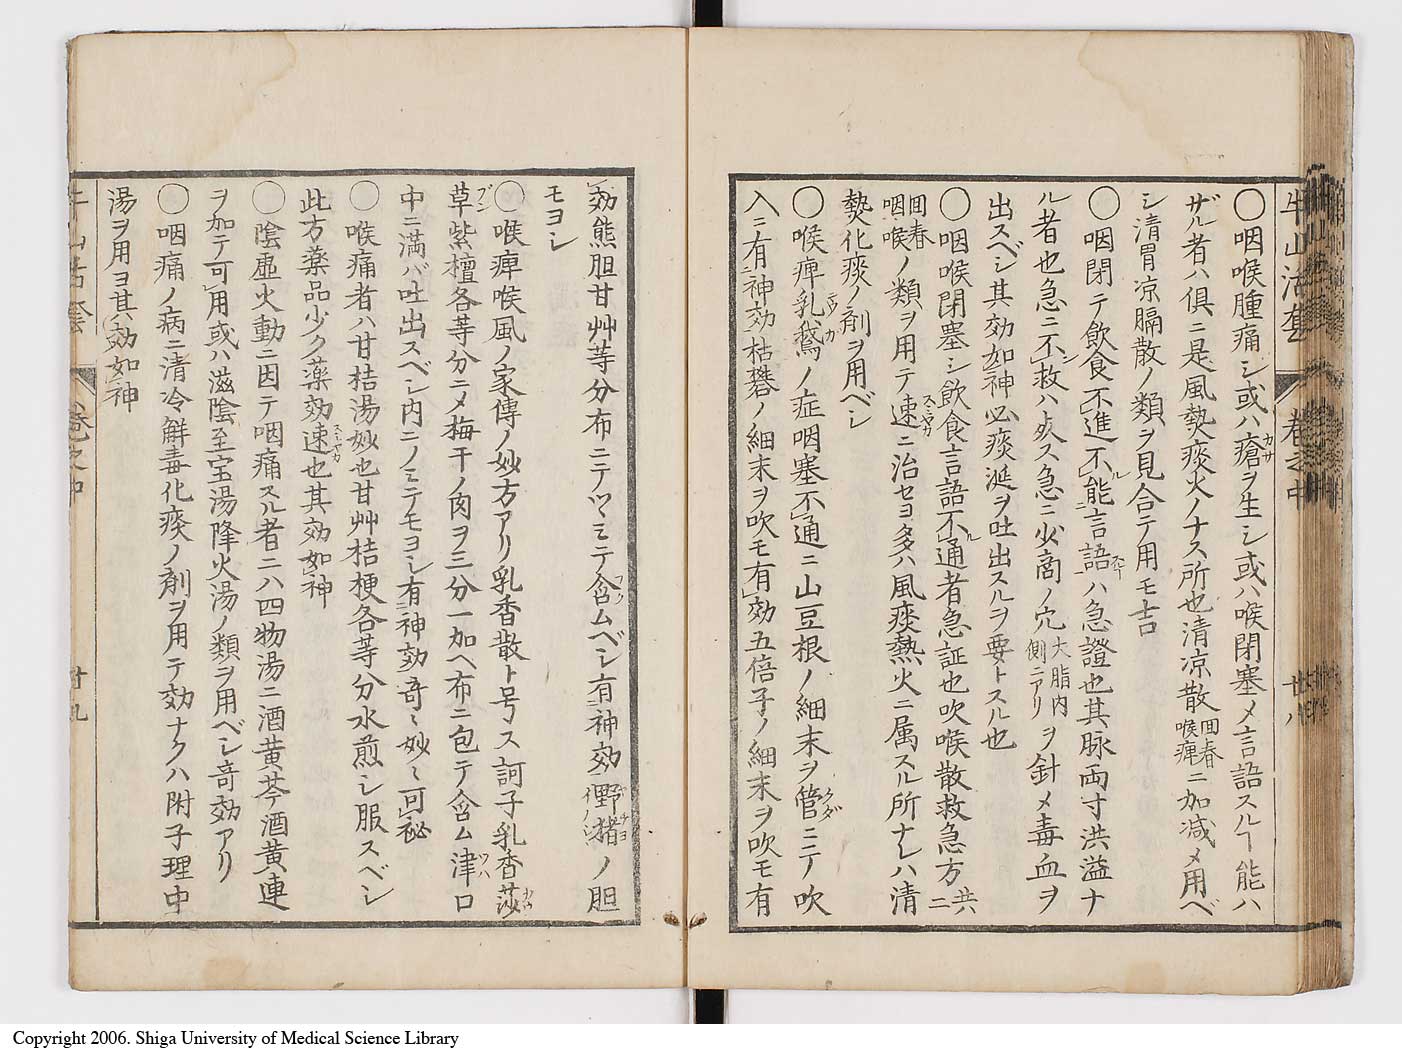 牛山活套 卷之中 廿八
〇咽喉腫痛シ或ハ瘡ヲ生シ或ハ喉閉塞メ言語スルヿ能ハ
ザル者ハ俱ニ是風𤍠痰火ノナス所也清凉散回春喉痺ニ加减メ用ベ
シ清胃凉膈散ノ類ヲ見合テ用モ吉
〇咽閉テ飲食不進不能言語ハ急證也其脉両寸洪溢ナ
ル者也急ニ不救ハ死ス急ニ少商ノ穴大脂内側ニアリヲ針メ毒血ヲ
出スベシ其効如神必痰涎ヲ吐出スルヲ要トスル也
〇咽喉閉塞シ飲食言語不通者急証也吹喉散救急方共ニ
回春咽喉ノ類ヲ用テ速ニ治セヨ多ハ風痰熱火ニ属スル所ナレハ清
𤍠化痰ノ剤ヲ用ベシ
〇喉痺乳鵞ノ症咽塞不通ニ山豆根ノ細末ヲ管ニテ吹
入ニ有神効枯礬ノ細末ヲ吹モ有効五倍子ノ細末ヲ吹モ有
効熊胆甘艸等分布ニテツヽミテ含ムベシ有神効野猪ノ胆
モヨシ
〇喉痺喉風ノ家傳ノ妙方アリ乳香散ト号ス訶子乳香莎
草紫檀各等分ニメ梅干ノ肉ヲ三分一加ヘ布ニ包テ含ム津口
中ニ満バ吐出スベシ内ニノミテモヨシ有神効奇〻妙〻可秘
〇喉痛者ハ甘桔湯妙也甘艸桔梗各等分水煎シ服スベシ
此方薬品少ク薬効速也其効如神
〇陰虚火動ニ因テ咽痛スル者ニハ四物湯ニ酒黄芩酒黄連
ヲ加テ可用或ハ滋陰至宝湯降火湯ノ類ヲ用ベシ竒効アリ
〇咽痛ノ病ニ清冷解毒化痰ノ剤ヲ用テ効ナクハ附子理中
湯ヲ用ヨ其効如神
牛山活套 卷之中 廿九
Copyright 2006. Shiga University of Medical Science Library